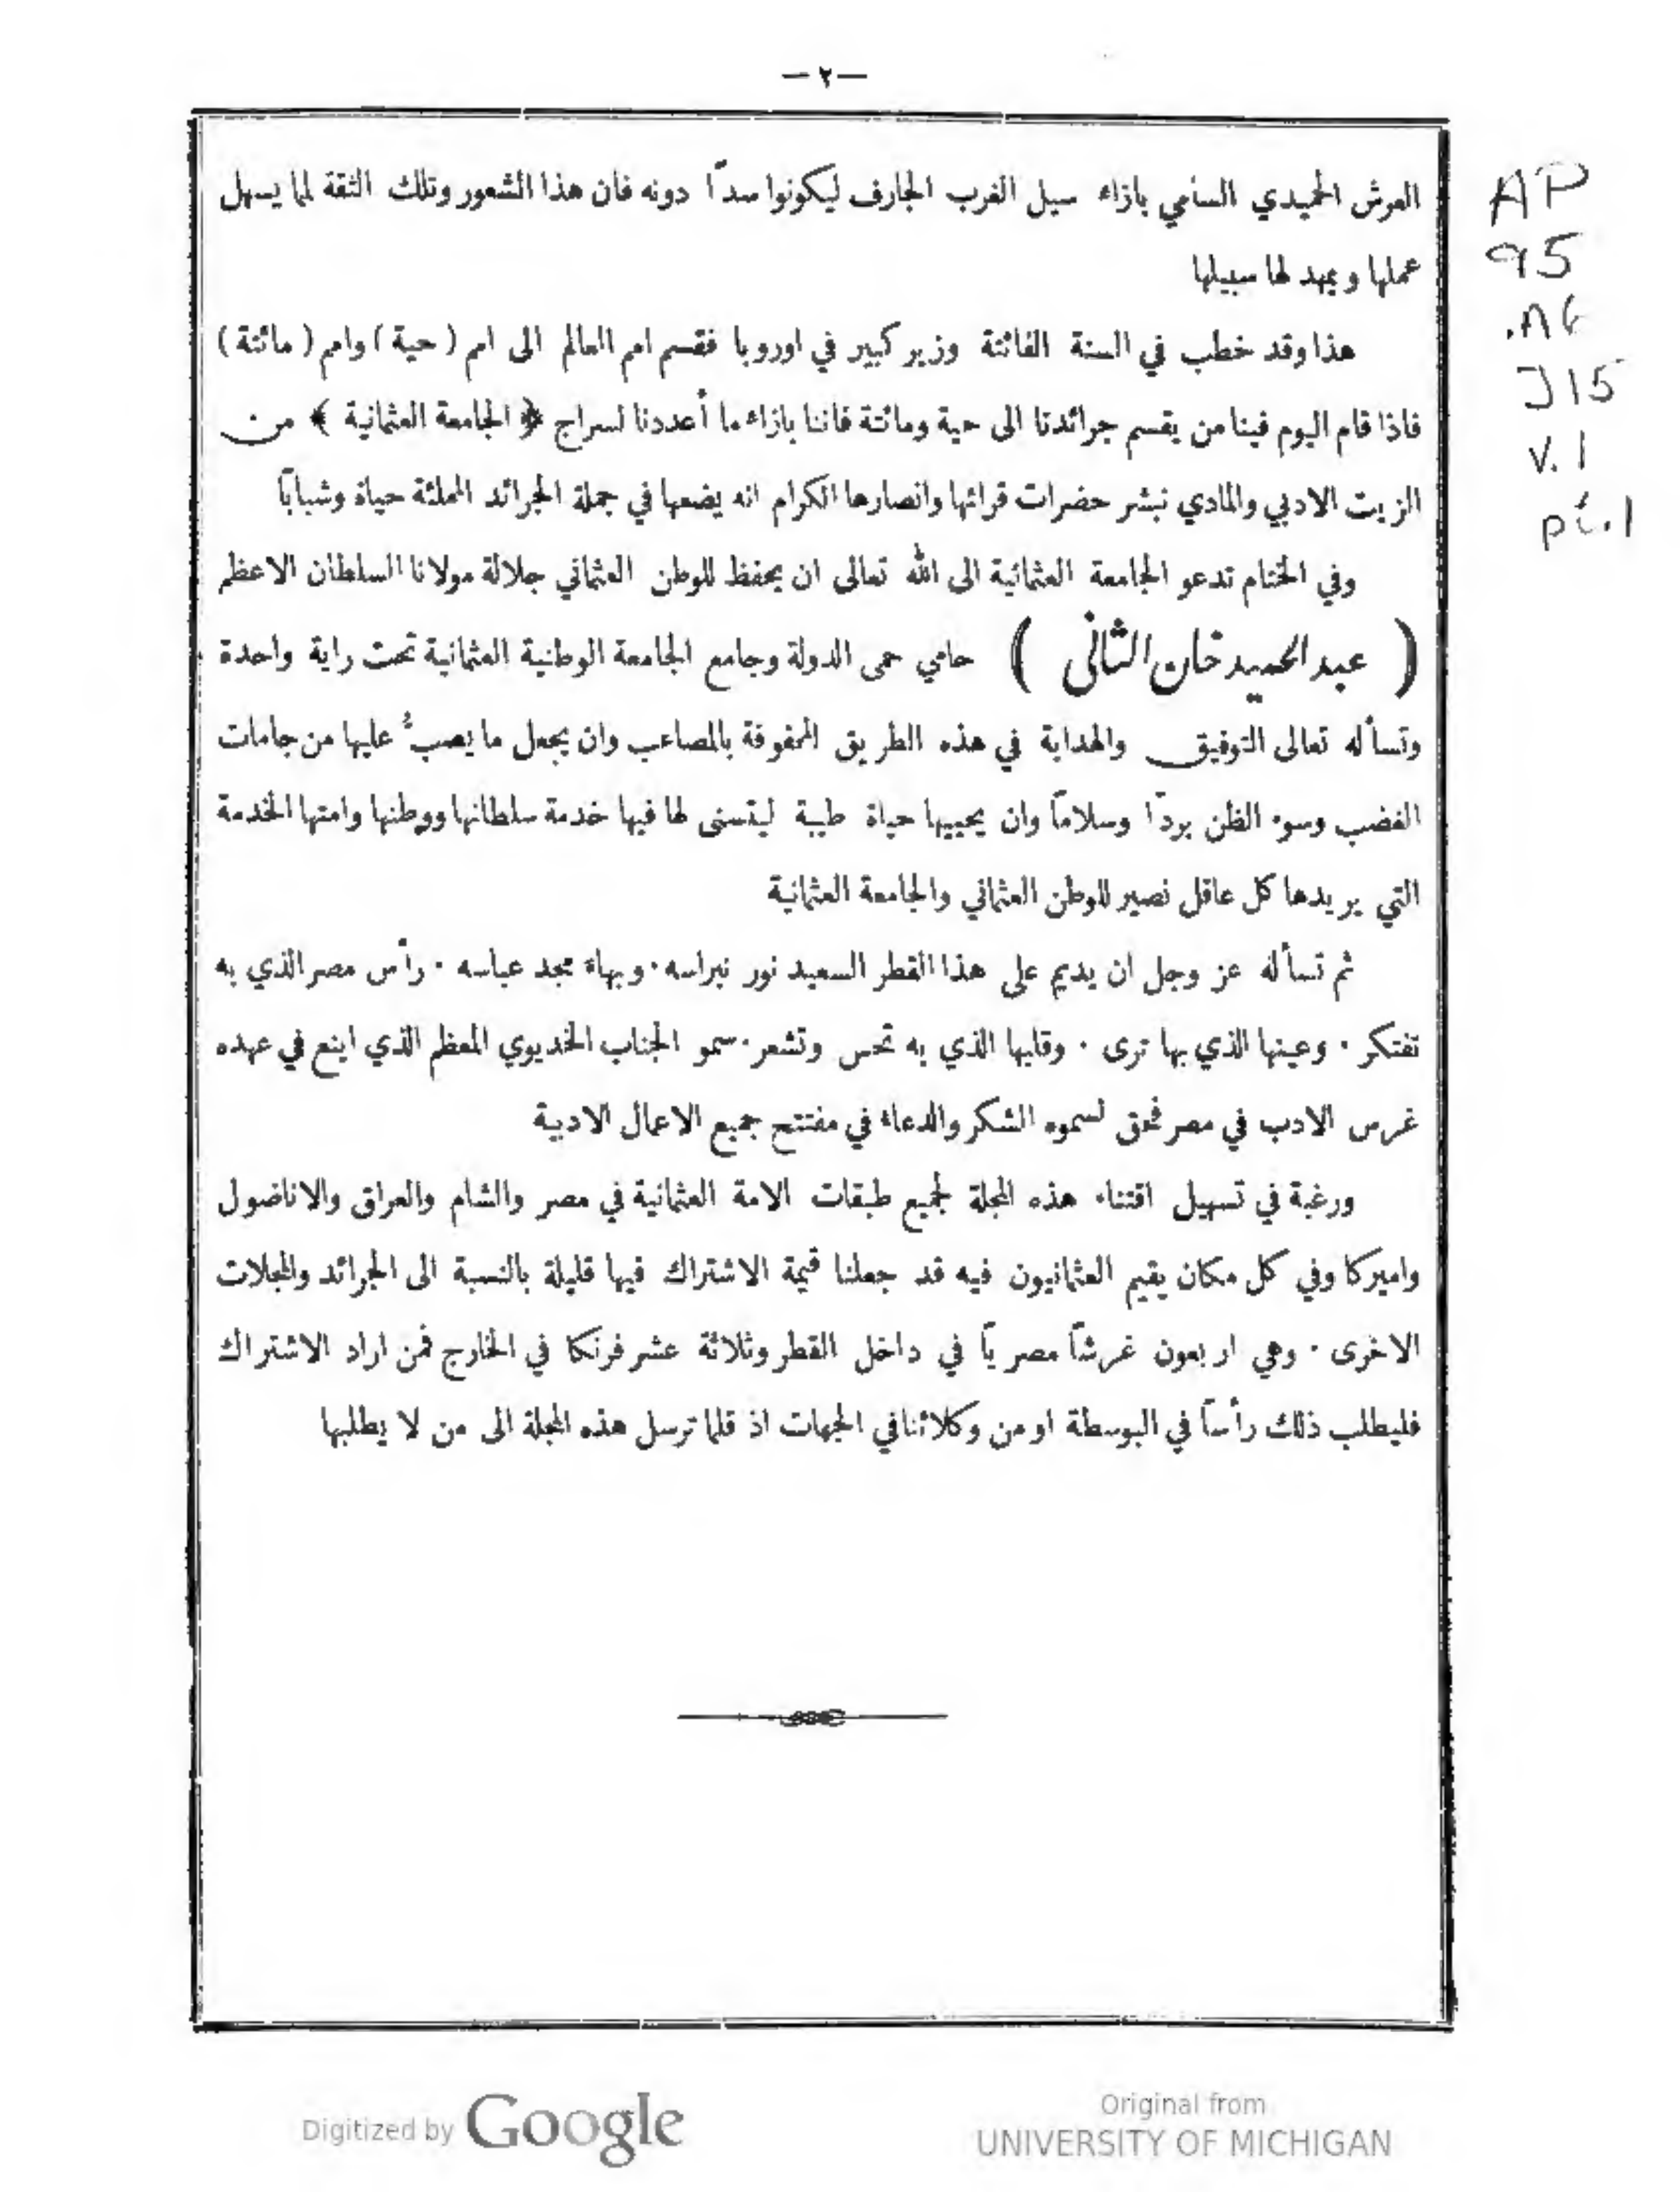 — ٢ —
العرش الحميدي السامي بازاء سيل الغرب الجارف ليكونوا سدًّا دونه فان هذا الشعور وتلك الثقة لما يسهل
عملها ويمهد لها سبيلها
هذا وقد خطب في السنة الفائتة وزير كبير في اوروبا فقسم امم العالم الى امم ( حية ) وامم ( مائتة )
فاذا قام اليوم فينا من يقسم جرائدنا الى حية ومائتة فاننا بازاء ما أعددنا لسراج ﴿ الجامعة العثمانية ﴾ من
الزيت الادبي والمادي نبشر حضرات قرائها وانصارها الكرام انه يضعها في جملة الجرائد الملئة حياة وشبابًا
وفي الختام تدعو الجامعة العثمانية الى الله تعالى ان يحفظ للوطن العثماني جلالة مولانا السلطان الاعظم
( عبد الحميد خان الثانى ) حامي حمى الدولة وجامع الجامعة الوطنية العثمانية تحت راية واحدة
وتسأله تعالى التوفيق والهداية في هذه الطريق المحفوفة بالمصاعب وان يجعل ما يصبُّ عليها من جامات
الغضب وسوء الظن بردًا وسلامًا وان يحييها حياة طيبة ليتسنى لها فيها خدمة سلطانها ووطنها وامتها الخدمة
التي يريدها كل عاقل نصير للوطن العثماني والجامعة العثمانية
ثم تسأله عز وجل ان يديم على هذا القطر السعيد نور نبراسه ٠ وبهاء مجد عباسه ٠ رأس مصر الذي به
تفتكر ٠ وعينها الذي بها ترى ٠ وقلبها الذي به تحس وتشعر ٠ سمو الجناب الخديوي المعظم الذي اينع في عهده
غرس الادب في مصر فحق لسموه الشكر والدعاء في مفتتح جميع الاعمال الادبية
ورغبة في تسهيل اقتناء هذه المجلة لجميع طبقات الامة العثمانية في مصر والشام والعراق والاناضول
واميركا وفي كل مكان يقيم العثمانيون فيه قد جعلنا قيمة الاشتراك فيها قليلة بالنسبة الى الجرائد والمجلات
الاخرى ٠ وهي اربعون غرشًا مصريًا في داخل القطر وثلاثة عشر فرنكا في الخارج فمن اراد الاشتراك
فليطلب ذلك رأسًا في البوسطة او من وكلائنا في الجهات اذ قلما ترسل هذه المجلة الى من لا يطلبها
AP
95
.A6
J15
v.1
pt.1
Digitized by Google
Original from
UNIVERSITY OF MICHIGAN